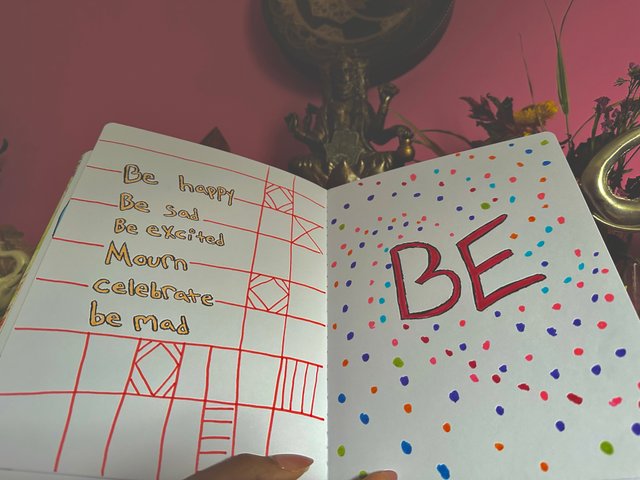 Be happy
Be sad
Be excited
Mourn
celebrate
be mad
BE